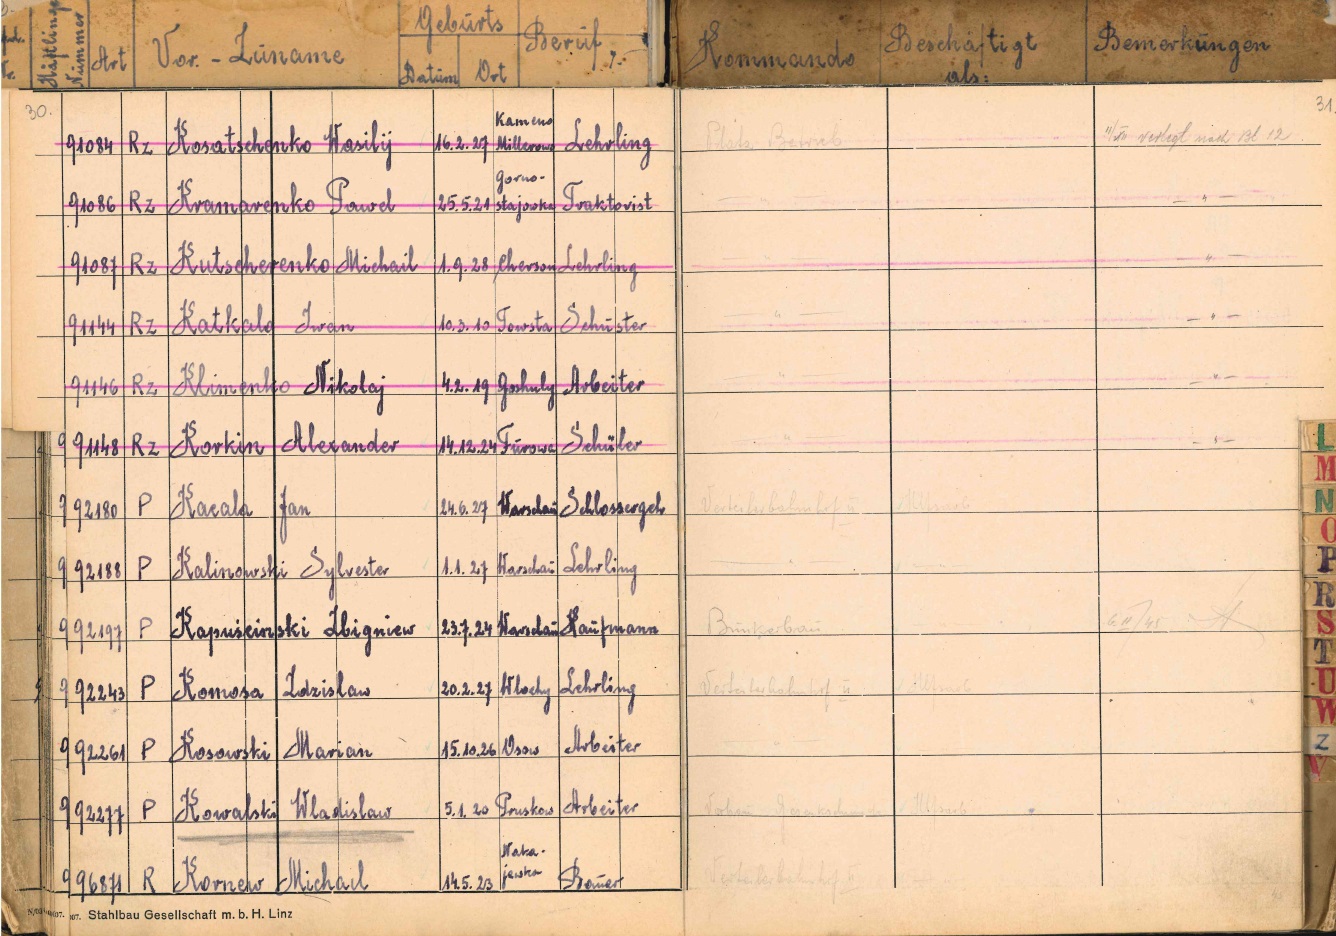 Häftlings Nummer Art Vor.-Zuname Geburts Datum Ort Beruf Kommando Beschäftigt als: Bemerkungen
30. 31.
91084 Rz Kosatschenko Wasilij 16.2.27 Kameno Millerowo Lehrling verlegt nach Bl 12
91086 Rz Kramarenko Pawel 25.5.21 Gorno-stajowka Traktorist - " -
91087 Rz Kutscherenko Michail 1.9.28 Cherson Lehrling "
91144 Rz Katkalo Iwan 10.3.10 Towsta Schuster - " -
91146 Rz Klimenko Nikolaj 4.2.19 Goshuly Arbeiter - " -
9 91148 Rz Korkin Alexander 14.12.24 Furowa Schüler - " -
9 92180 P Kacala Jan 24.6.27 Warschau Schlossergeh Verteilerbahnhof
9 92188 P Kalinowski Sylvester 1.1.27 Warschau Lehrling
9 92197 P Kapuścinski Zbigniew 23.7.24 Warschau Kaufmann Bunkerbau
9 92243 P Komosa Zdzislaw 20.2.27 Wlochy Lehrling Verteilerbahnhof
9 92261 P Kosowski Marian 15.10.26 Ossow Arbeiter
9 92277 P Kowalski Wladislaw 5.1.20 Pruskow Arbeiter
9 96871 R Kornew Michail 14.5.23 Naka-jewka Bauer Verteilerbahnhof
Stahlbau Gesellschaft m. b. H. Linz
L
M
N
O
P
R
S
T
U
W
Z
V